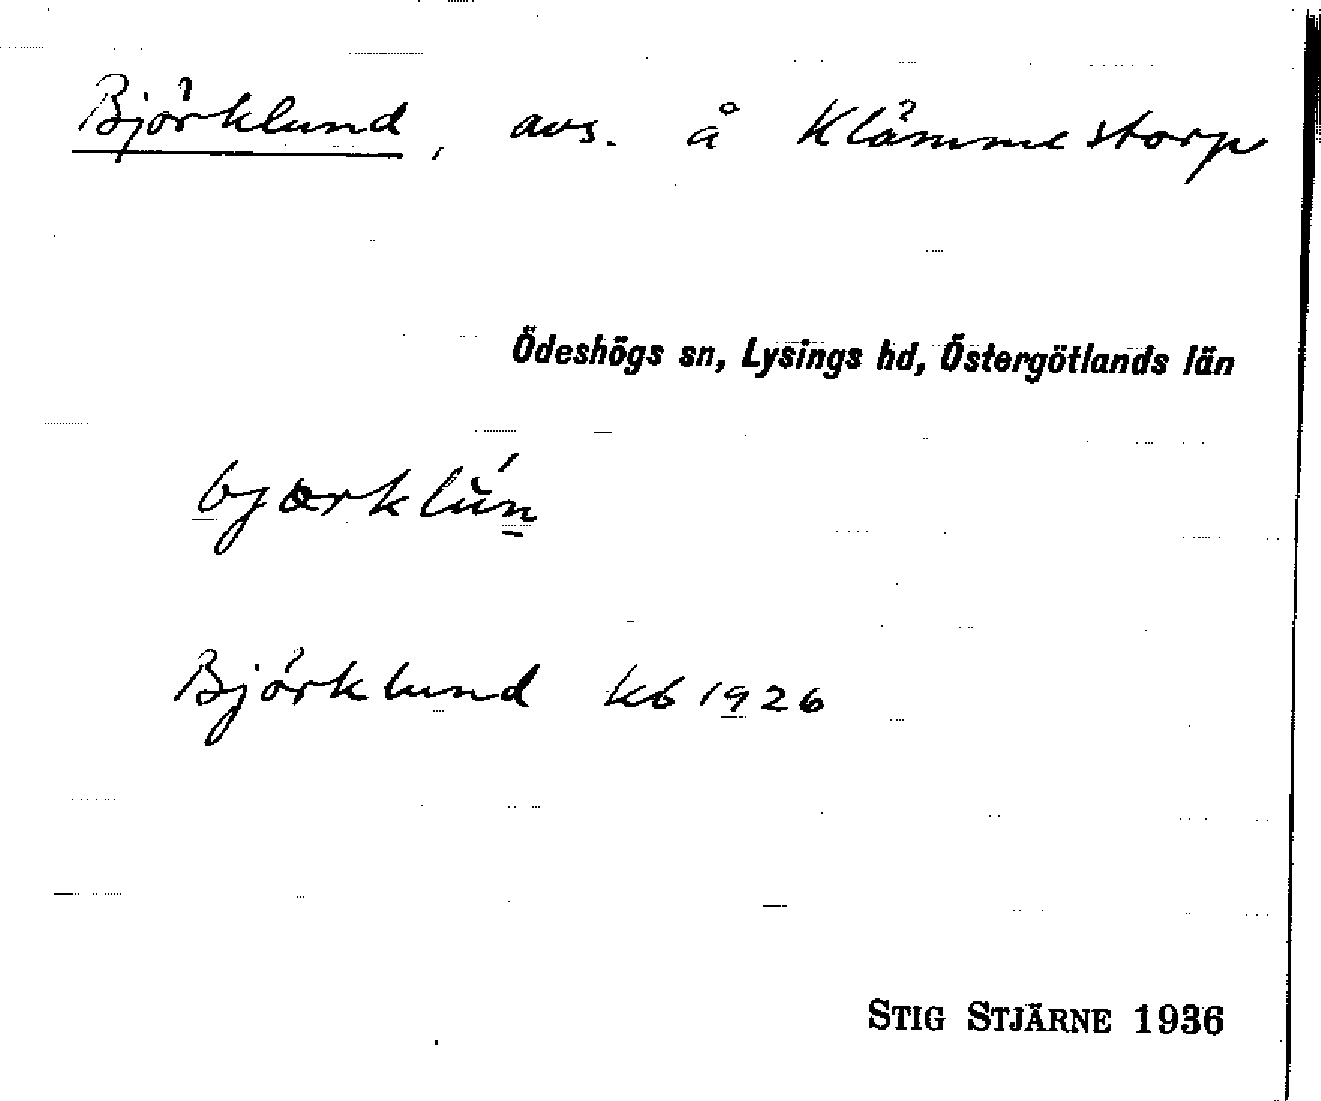 Björklund, avs. å Klämmestorp
Ödeshögs sn, Lysings hd, Östergötlands län
bjærklún
Björklund kb 1926
STIG STJÄRNE 1936